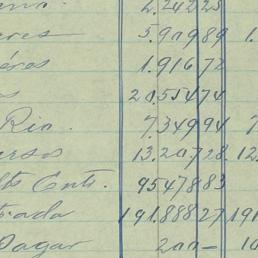 2.242 23
eres 5.909 89 1.
éros 1.916 72
os 20.554 74
Rio. 7.349 94 7
ersos 13.207 28 12.
lts Entr. 9547 8 83
trada 191.888 27 191
Pagar 200 — 10